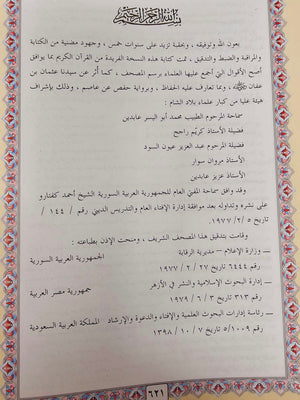 بسم الله الرحمن الرحيم
بعون الله وتوفيقه ، وبحقبة تزيد على سنوات خمس ، وجهود مضنية من الكتابة
والمراقبة والضبط والتدقيق ، تمت كتابة هذه النسخة الفريدة من القرآن الكريم بما يوافق
أصح الأقوال التي أجمع عليها العلماء برسم المصحف ، كما أُثر عن سيدنا عثمان بن
عفان ، وبما تعارف عليه الحفاظ ، وبرواية حفص عن عاصم ، وذلك بإشراف
هيئة عليا من كبار علماء بلاد الشام :
سماحة المرحوم الطبيب محمد أبو اليسر عابدين
فضيلة الأستاذ كريّم راجح
فضيلة المرحوم عبد العزيز عيون السود
الأستاذ مروان سوار
الأستاذ عزيز عابدين
وقد وافق سماحة المفتي العام للجمهورية العربية السورية الشيخ أحمد كفتارو
على نشره وتداوله بعد موافقة إدارة الإفتاء العام والتدريس الديني رقم / ١٤٤ /
تاريخ ٥ / ٢ / ١٩٧٧
وقامت بتدقيق هذا المصحف الشريف ، ومنحت الإذن بطباعته :
ــ وزارة الإعلام – مديرية الرقابة الجمهورية العربية السورية
رقم ٦٤٤٤ تاريخ ٢٧ / ٢ / ١٩٧٧
ــ إدارة البحوث الإسلامية والنشر في الأزهر جمهورية مصر العربية
رقم ٣١٣ تاريخ ٣ / ٦ / ١٩٧٩
ــ رئاسة إدارات البحوث العلمية والإفتاء والدعوة والإرشاد المملكة العربية السعودية
رقم ٥/١٠٠٩ تاريخ ٧ / ١٠ / ١٣٩٨
٦٢١